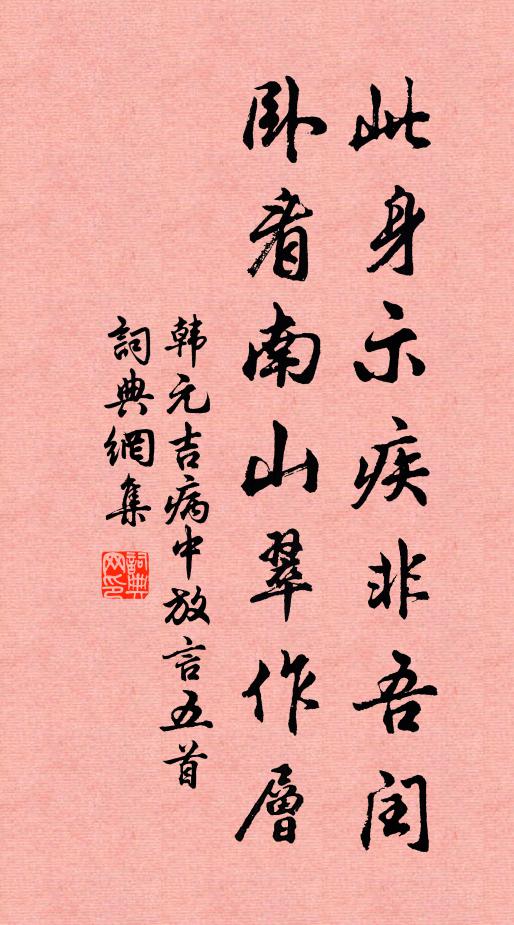 此身示疾非吾闰
卧看南山翠作層
韩元吉病中放言五首
詞典網集
詞典网印